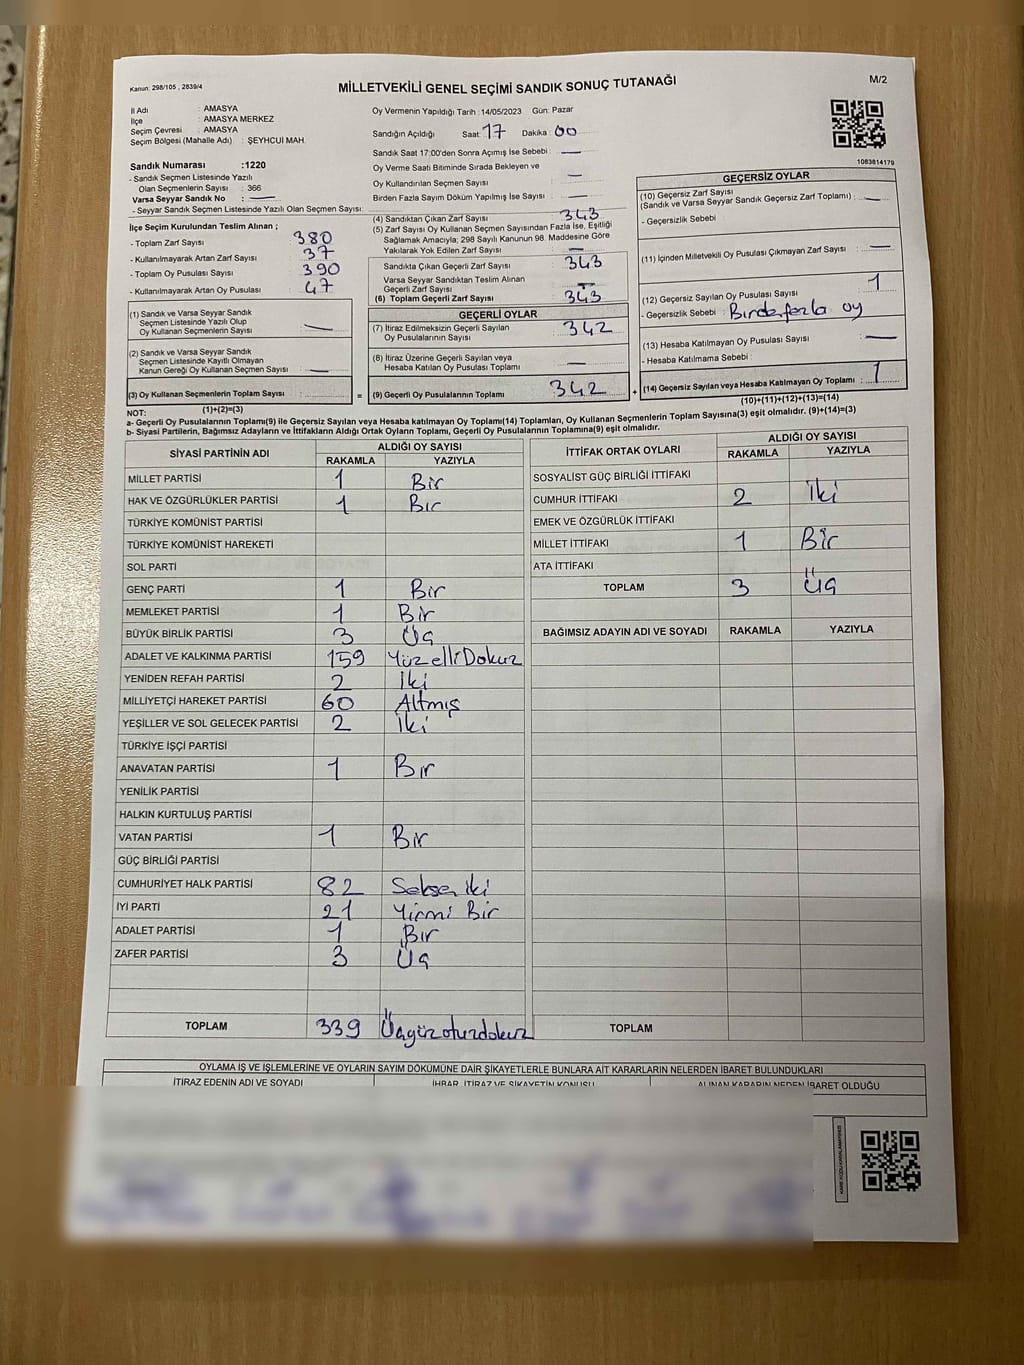 Kanun: 298/105 , 2839/4
MİLLETVEKİLİ GENEL SEÇİMİ SANDIK SONUÇ TUTANAĞI
M/2
İl Adı : AMASYA
İlçe : AMASYA MERKEZ
Seçim Çevresi : AMASYA
Seçim Bölgesi (Mahalle Adı) : ŞEYHCUİ MAH.
Sandık Numarası :1220
- Sandık Seçmen Listesinde Yazılı
Olan Seçmenlerin Sayısı : 366
Varsa Seyyar Sandık No : —
- Seyyar Sandık Seçmen Listesinde Yazılı Olan Seçmen Sayısı:
İlçe Seçim Kurulundan Teslim Alınan ;
- Toplam Zarf Sayısı 380
- Kullanılmayarak Artan Zarf Sayısı 37
- Toplam Oy Pusulası Sayısı 390
- Kullanılmayarak Artan Oy Pusulası 47
(1) Sandık ve Varsa Seyyar Sandık
Seçmen Listesinde Yazılı Olup
Oy Kullanan Seçmenlerin Sayısı —
(2) Sandık ve Varsa Seyyar Sandık
Seçmen Listesinde Kayıtlı Olmayan
Kanun Gereği Oy Kullanan Seçmen Sayısı : —
(3) Oy Kullanan Seçmenlerin Toplam Sayısı :
(1)+(2)=(3)
Oy Vermenin Yapıldığı Tarih : 14/05/2023 Gün: Pazar
Sandığın Açıldığı Saat 17 Dakika 00
Sandık Saat 17:00'den Sonra Açımış İse Sebebi : —
Oy Verme Saati Bitiminde Sırada Bekleyen ve
Oy Kullandırılan Seçmen Sayısı : —
Birden Fazla Sayım Döküm Yapılmış İse Sayısı : —
(4) Sandıktan Çıkan Zarf Sayısı : 343
(5) Zarf Sayısı Oy Kullanan Seçmen Sayısından Fazla İse, Eşitliği
Sağlamak Amacıyla; 298 Sayılı Kanunun 98. Maddesine Göre
Yakılarak Yok Edilen Zarf Sayısı : —
Sandıkta Çıkan Geçerli Zarf Sayısı : 343
Varsa Seyyar Sandıktan Teslim Alınan
Geçerli Zarf Sayısı : —
(6) Toplam Geçerli Zarf Sayısı : 343
GEÇERLİ OYLAR
(7) İtiraz Edilmeksizin Geçerli Sayılan
Oy Pusulalarının Sayısı : 342
(8) İtiraz Üzerine Geçerli Sayılan veya
Hesaba Katılan Oy Pusulası Toplamı : —
= (9) Geçerli Oy Pusulalarının Toplamı : 342 +
1083814179
GEÇERSİZ OYLAR
(10) Geçersiz Zarf Sayısı
(Sandık ve Varsa Seyyar Sandık Geçersiz Zarf Toplamı) : —
- Geçersizlik Sebebi :
(11) İçinden Milletvekili Oy Pusulası Çıkmayan Zarf Sayısı : —
(12) Geçersiz Sayılan Oy Pusulası Sayısı : 1
- Geçersizlik Sebebi : Birdenfazla oy
(13) Hesaba Katılmayan Oy Pusulası Sayısı : —
- Hesaba Katılmama Sebebi :
(14) Geçersiz Sayılan veya Hesaba Katılmayan Oy Toplamı : 1
(10)+(11)+(12)+(13)=(14)
NOT:
a- Geçerli Oy Pusulalarının Toplamı(9) ile Geçersiz Sayılan veya Hesaba katılmayan Oy Toplamı(14) Toplamları, Oy Kullanan Seçmenlerin Toplam Sayısına(3) eşit olmalıdır. (9)+(14)=(3)
b- Siyasi Partilerin, Bağımsız Adayların ve İttifakların Aldığı Ortak Oyların Toplamı, Geçerli Oy Pusulalarının Toplamına(9) eşit olmalıdır.
SİYASİ PARTİNİN ADI ALDIĞI OY SAYISI
RAKAMLA YAZIYLA
MİLLET PARTİSİ 1 Bir
HAK VE ÖZGÜRLÜKLER PARTİSİ 1 Bir
TÜRKİYE KOMÜNİST PARTİSİ
TÜRKİYE KOMÜNİST HAREKETİ
SOL PARTİ
GENÇ PARTİ 1 Bir
MEMLEKET PARTİSİ 1 Bir
BÜYÜK BİRLİK PARTİSİ 3 Üç
ADALET VE KALKINMA PARTİSİ 159 YüzelliDokuz
YENİDEN REFAH PARTİSİ 2 İki
MİLLİYETÇİ HAREKET PARTİSİ 60 Altmış
YEŞİLLER VE SOL GELECEK PARTİSİ 2 İki
TÜRKİYE İŞÇİ PARTİSİ
ANAVATAN PARTİSİ 1 Bir
YENİLİK PARTİSİ
HALKIN KURTULUŞ PARTİSİ
VATAN PARTİSİ 1 Bir
GÜÇ BİRLİĞİ PARTİSİ
CUMHURİYET HALK PARTİSİ 82 Seksen iki
İYİ PARTİ 21 Yirmi Bir
ADALET PARTİSİ 1 Bir
ZAFER PARTİSİ 3 Üç
TOPLAM 339 Üçyüzotuzdokuz
İTTİFAK ORTAK OYLARI ALDIĞI OY SAYISI
RAKAMLA YAZIYLA
SOSYALİST GÜÇ BİRLİĞİ İTTİFAKI
CUMHUR İTTİFAKI 2 İki
EMEK VE ÖZGÜRLÜK İTTİFAKI
MİLLET İTTİFAKI 1 Bir
ATA İTTİFAKI
TOPLAM 3 Üç
BAĞIMSIZ ADAYIN ADI VE SOYADI RAKAMLA YAZIYLA
TOPLAM
OYLAMA İŞ VE İŞLEMLERİNE VE OYLARIN SAYIM DÖKÜMÜNE DAİR ŞİKAYETLERLE BUNLARA AİT KARARLARIN NELERDEN İBARET BULUNDUKLARI
İTİRAZ EDENİN ADI VE SOYADI İHBAR, İTİRAZ VE ŞİKAYETİN KONUSU ALINAN KARARIN NEDEN İBARET OLDUĞU